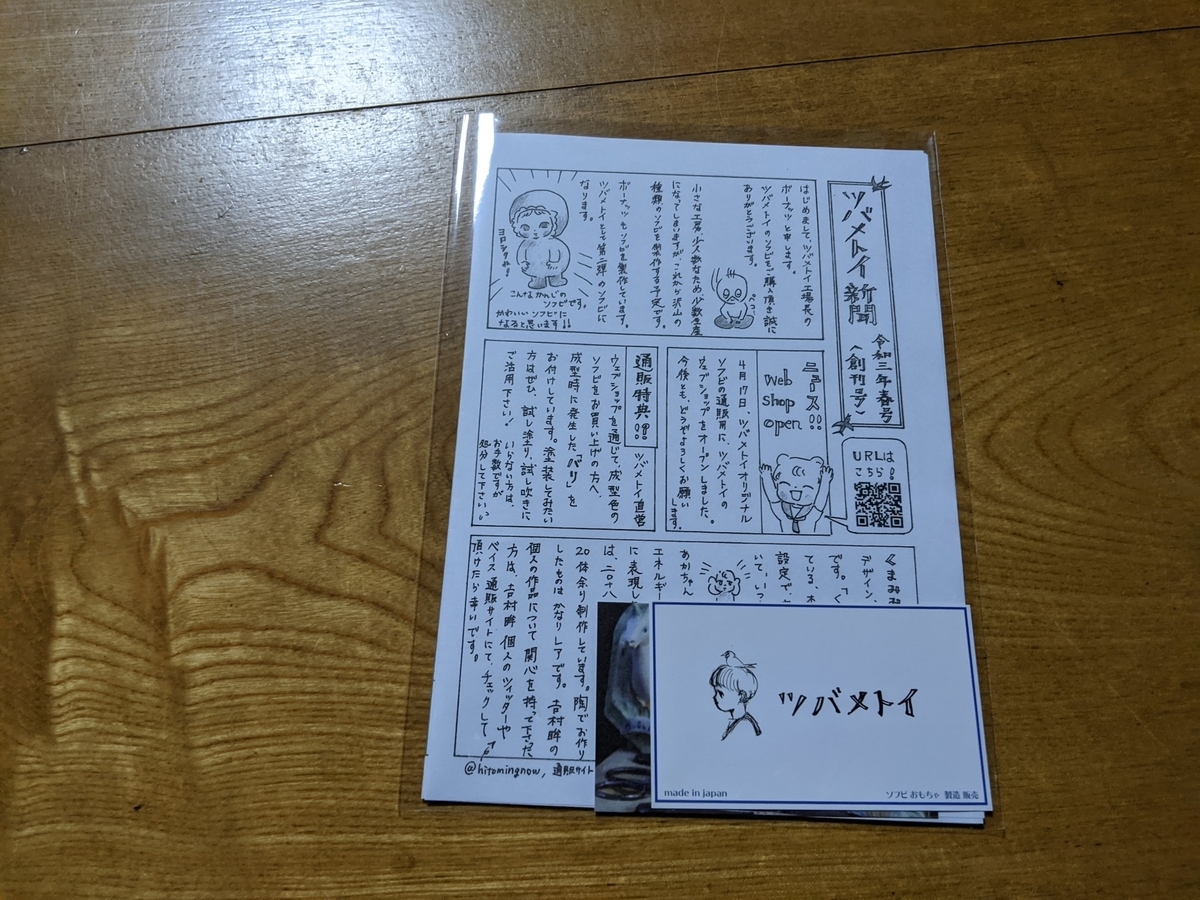 ツバメトイ新聞
令和三年春号
〈創刊号〉
はじめまして、ツバメトイ工場長の
ポーナッツと申します。
ツバメトイのソフビをご購入頂き誠に
ありがとうございます。
ペコッ
小さな工房、少人数なため少数生産
になってしまいますが、これから沢山の
種類のソフビを制作する予定です。
ポーナッツもソフビを製作しています。
ツバメトイとして第二弾のソフビに
なります。
ヨロシクね!
こんなかんじの
ソフビです。
かわいいソフビに
なると思います!!
URLは
こちら!
ニュース!!
Web
shop
open
4月17日、ツバメトイオリジナル
ソフビの通販用に、ツバメトイの
ウェブショップをオープンしました。
今後とも、どうぞよろしくお願い
します。
通販特典!!
ツバメトイ直営
ウェブショップを通じて、成型色の
ソフビをお買い上げの方へ、
成型時に発生した、「バリ」を
お付けしています。塗装してみたい
方はぜひ、試し塗り、試し吹きに
ご活用下さい!
いらない方は、
お手数ですが
処分して下さい。
《まみみ
デザイン、
です。「く
ている、木
設定で、
いて、いつ
あかちゃん
エネルギー
に表現し
は、二〇十八
20体余り制作しています。陶でお作り
したものはかなりレアです。吉村眸の
個人の作品について関心を持って下さった
方は、吉村眸個人のツイッターや
ベイス通販サイトにて、チェックして
頂けたら幸いです。
@hitomingnow, 通販サイト
ツバメトイ
made in japan
ソフビ おもちゃ 製造 販売